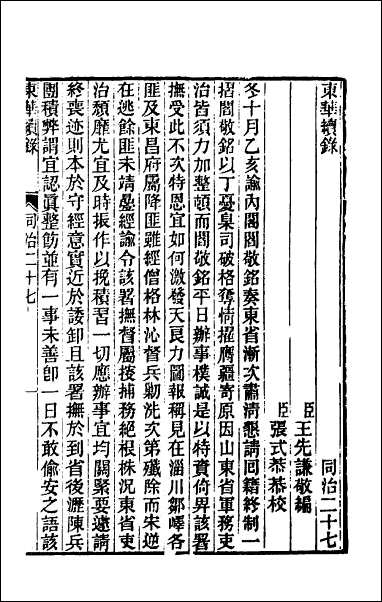 東華續錄
同治二十七
臣王先謙敬編
臣張式恭恭校
冬十月乙亥諭內閣閻敬銘奏東省漸次肅清懇請回籍終制一
摺閻敬銘以丁憂臬司破格奪情擢膺疆寄原因山東省軍務吏
治皆須力加整頓而閻敬銘平日辦事樸誠是以特賚倚畀該署
撫受此不次特恩宜如何激發天良力圖報稱見在淄川鄒嶧各
匪及東昌府屬降匪雖經僧格林沁督兵剿洗次第殲除而宋逆
在逃餘匪未靖疊經諭令該署撫督屬搜捕務絕根株況東省吏
治頹靡尤宜及時振作以挽積習一切應辦事宜均關緊要遽請
終喪迹則本於守經意實近於諉卸且該署撫於到省後瀝陳兵
團積弊謂宜認眞整飭並有一事未善卽一日不敢偷安之語該
東華續錄
同治二十七
一